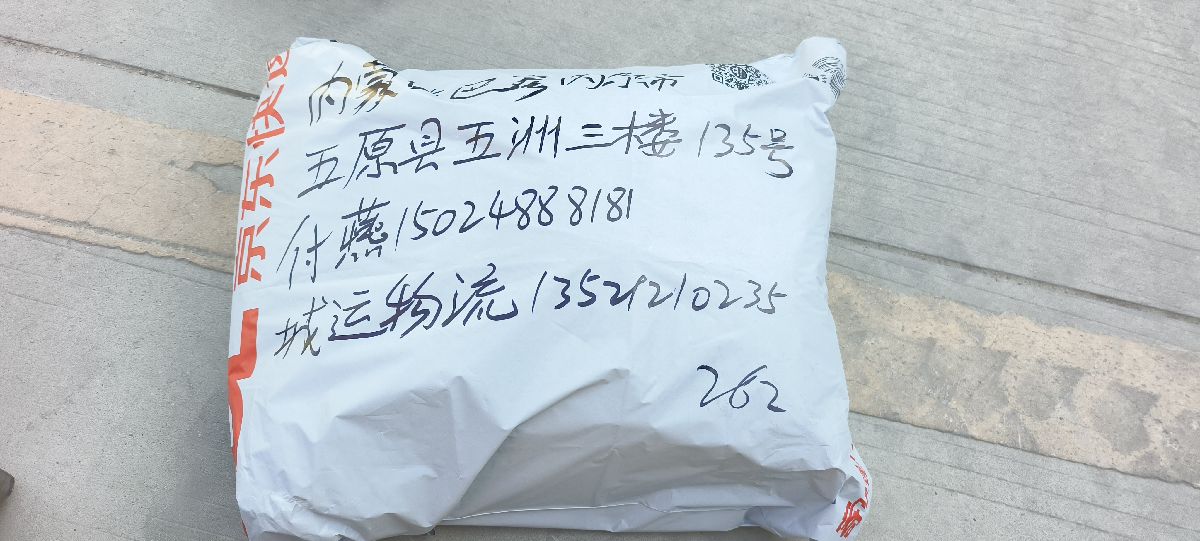 内蒙巴彦淖尔市
五原县五洲三楼135号
付燕15024888181
城运物流13521210235
262
京东快递